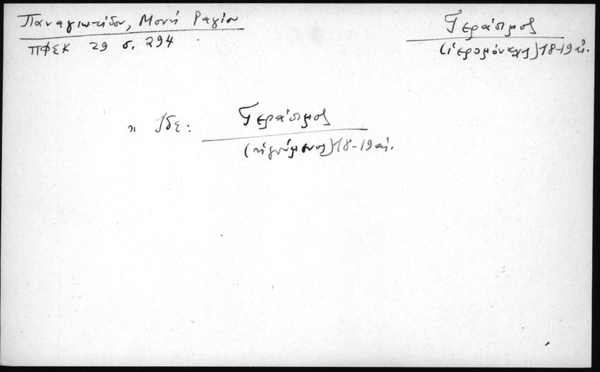 Παναγιωτίδου, Μονή Ραγίου
ΠΦΣΚ 29 σ. 294
Γεράσιμος
(ιερομόναχος) 18-19 αἰ.
Ἰδε: Γεράσιμος
(ηγούμενος) 18-19 αἰ.